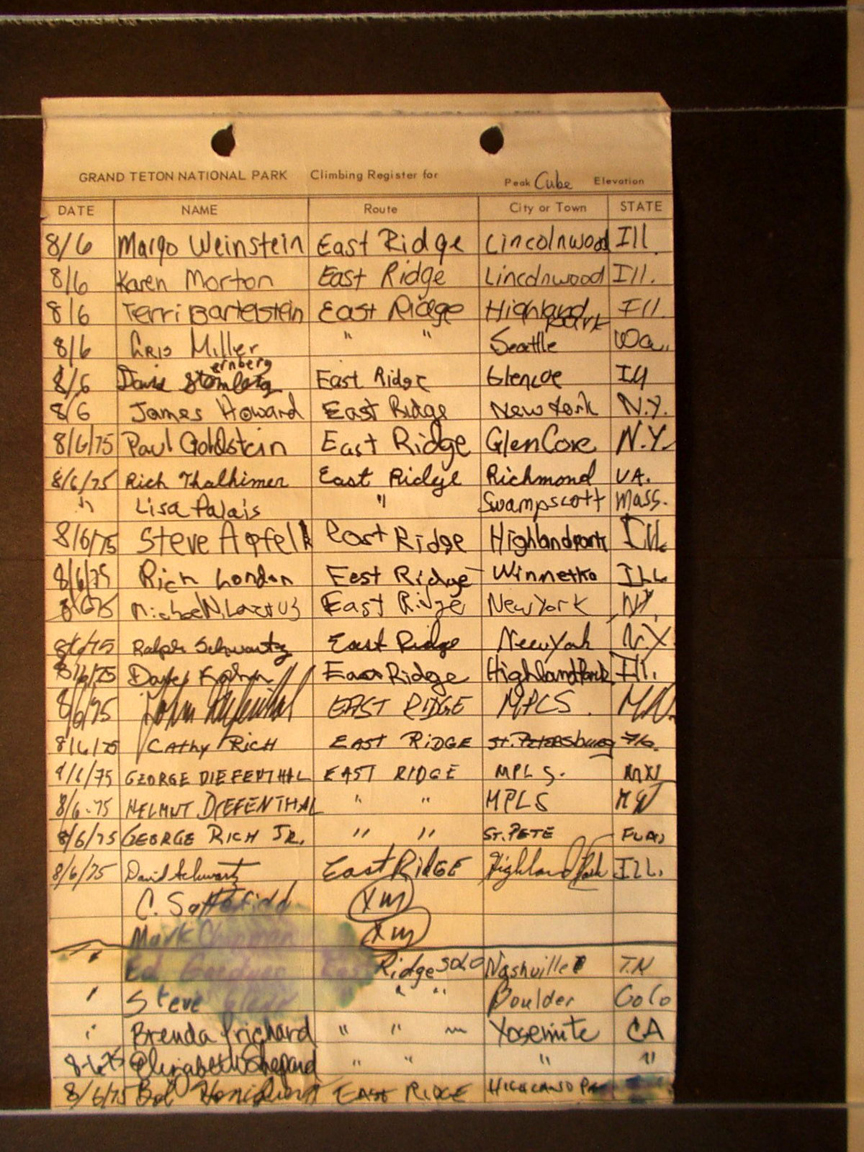 GRAND TETON NATIONAL PARK Climbing Register for Peak Cube Elevation
DATE NAME Route City or Town STATE
8/6 Margo Weinstein East Ridge Lincolnwood Ill.
8/6 Karen Morton East Ridge Lincolnwood Ill.
8/6 Terri Bartelstein East Ridge Highland Park Ill.
8/6 Cris Miller " " Seattle Wa.
ernberg
8/6 East Ridge Glencoe Ill
8/6 James Howard East Ridge New York N.Y.
8/6/75 Paul Goldstein East Ridge Glen Cove N.Y.
8/6/75 Rich Thalhimer East Ridge Richmond VA.
" Lisa Palais " Swampscott Mass.
8/6/75 Steve Apfel East Ridge Highland Park Ill.
8/6/75 Rich London East Ridge Winnetka ILL
8/6/75 East Ridge New York NY
8/6/75 Ralph Schwartz East Ridge New York N.Y.
8/6/75 East Ridge Highland Park Ill.
8/6/75 John EAST RIDGE MPLS. MN.
8/6/75 CATHY RICH EAST RIDGE ST. PETERSBURG Fla.
8/6/75 GEORGE DIEFENTHAL EAST RIDGE MPLS. MN
8/6-75 HELMUT DIEFENTHAL " " MPLS MN
8/6/75 GEORGE RICH JR. " " ST. PETE FLA
8/6/75 David Schwartz East RIDGE Highland Park ILL.
C. Satterfield XM
Mark Chapman XM
" Ed Gardner East Ridge SOLO Nashville TN
" Steve " " Boulder Colo
" Brenda Prichard " " Yosemite CA
8-6-75 Elizabeth Shepard " " " "
8/6/75 Bob EAST RIDGE HIGHLAND